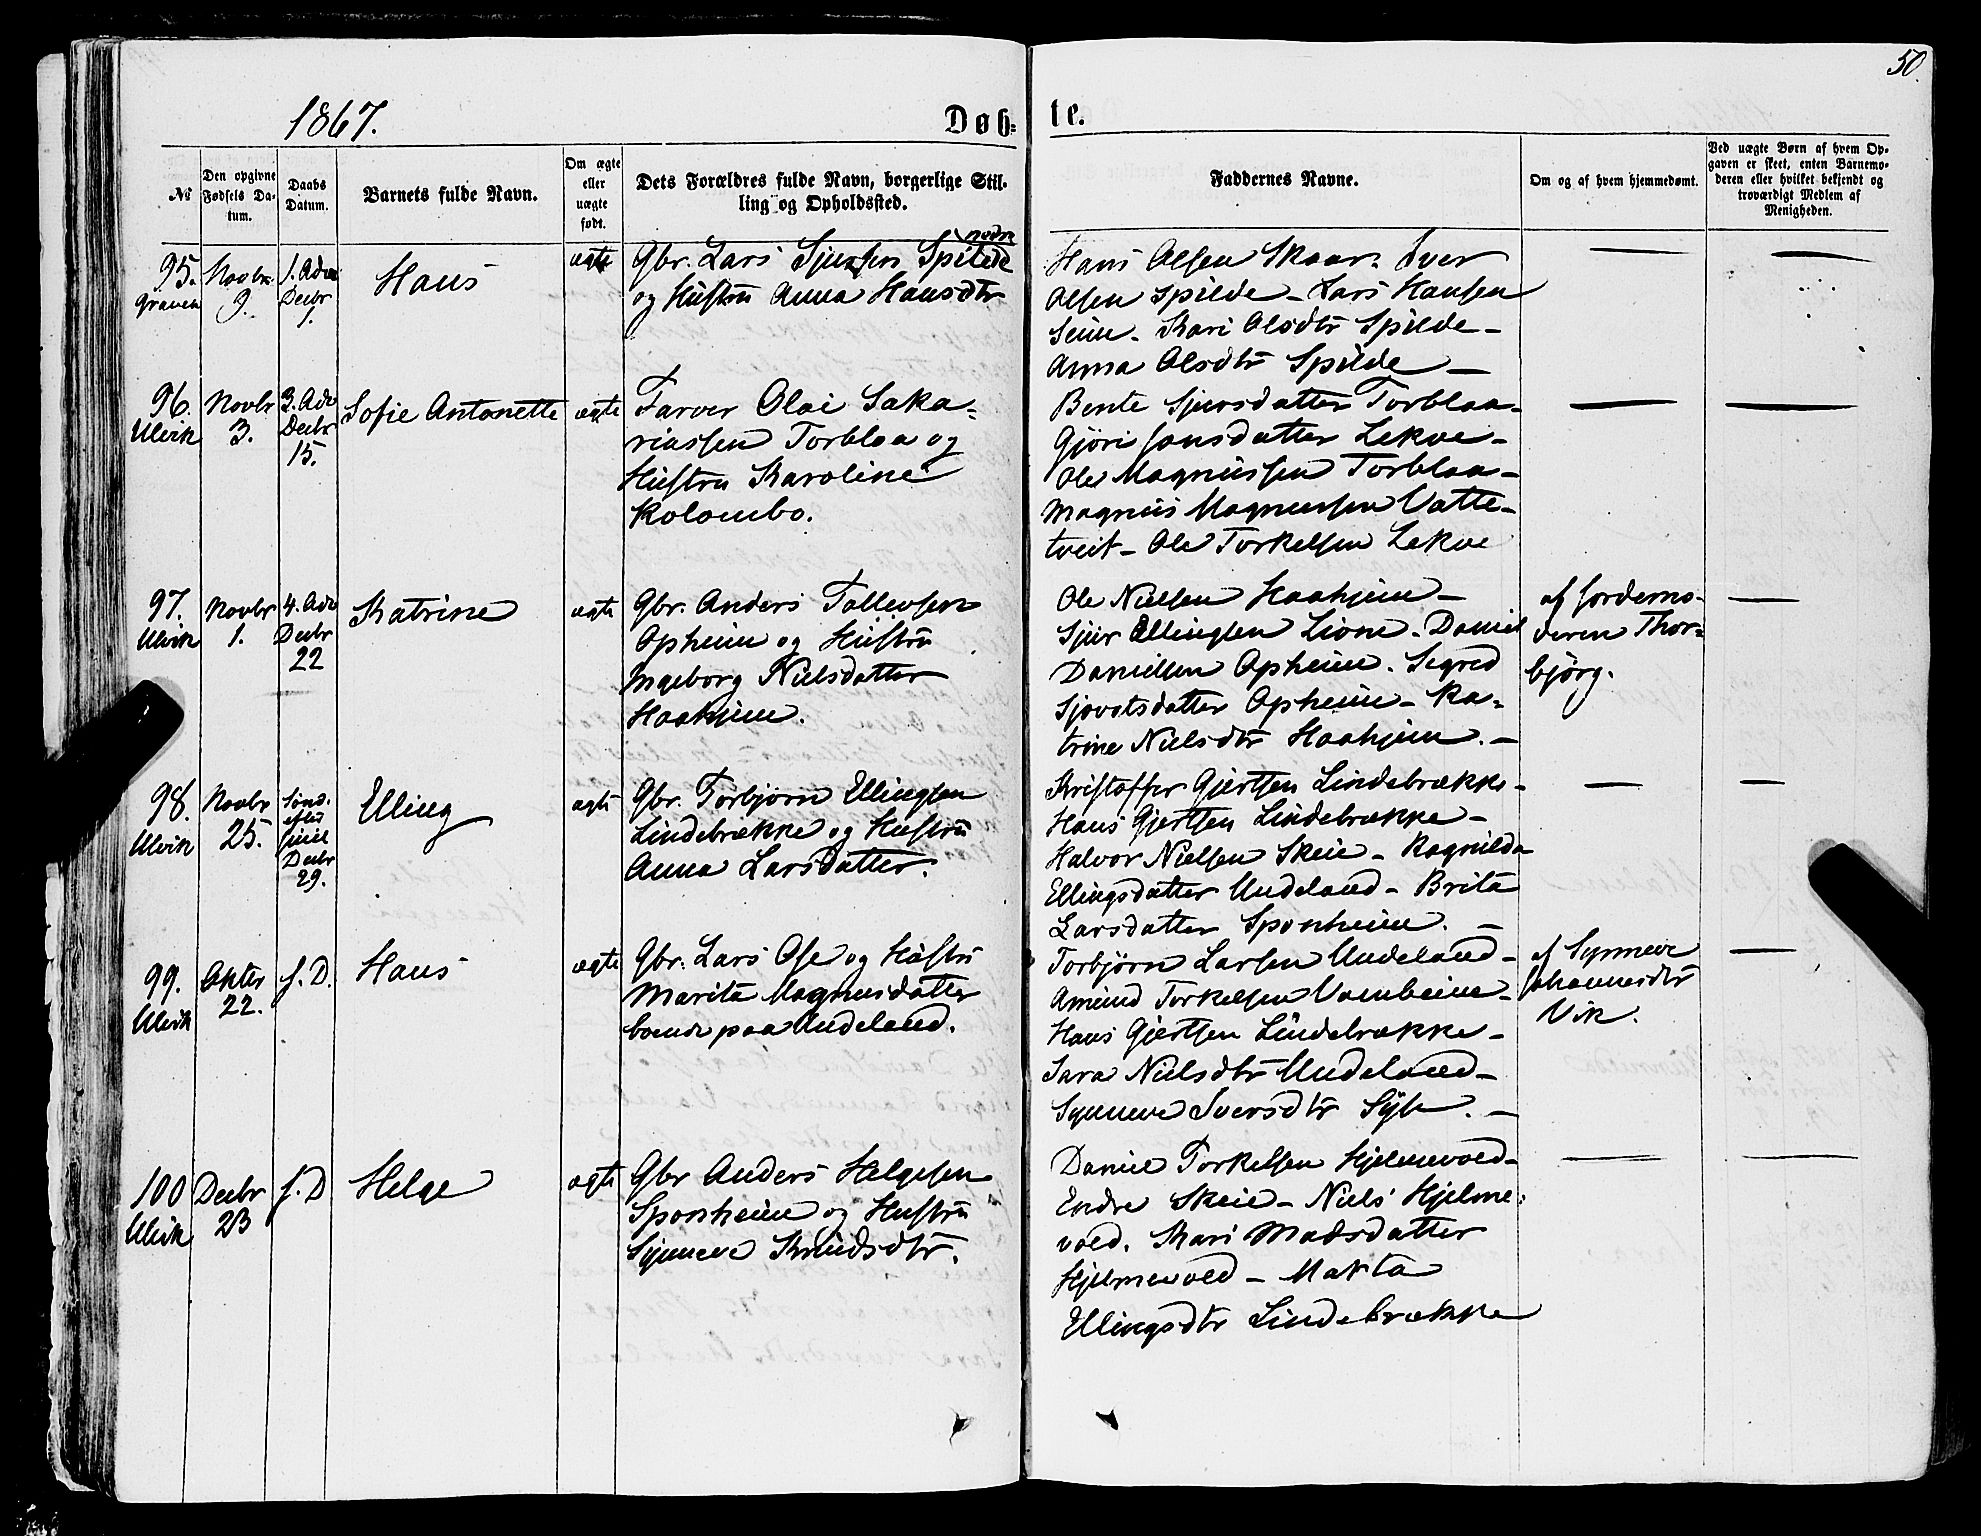 50.
1867.
Døb=
te.
№
Den opgivne Fødsels Da-
tum.
Daabs Datum.
Barnets fulde Navn.
Om ægte eller uægte født.
Dets Forældres fulde Navn, borgerlige Stil-
ling og Opholdssted.
Faddernes Navne.
Om og af hvem hjemmedøbt.
Ved uægte Børn af hvem Op-
gaven er skeet, enten Barnemo-
deren eller hvilket bekjendt og
troværdigt Medlem af
Menigheden.
95.
Graven
Novbr.
9.
1. Adv.
Decbr
1.
Hans
ægte
nedre
Gbr. Lars Sjursen Spilde
og Hustru Anna Hansdtr
Hans Olsen Skaar. Iver
Olsen Spilde – Lars Hansen
Seim. Kari Olsdtr Spilde –
Anna Olsdtr Spilde –
96.
Ulvik
Novbr
3.
3. Adv
Decbr
15.
Sofie Antonette
ægte
Farver Olai Saka-
riassen Torblaa og
Hustru Karoline
Kolombo.
Bente Sjursdatter Torblaa-
Gjøri Jonsdatter Lekve-
Ole Magnussen Torblaa-
Magnus Magnussen Vatte-
tveit – Ole Torkelsen Lekve
97.
Ulvik
Novbr
1.
4. Adv
Decbr
22
Katrine
ægte
Gbr. Anders Tollevsen
Opheim og Hustru
Ingeborg Nielsdatter
Haaheim.
Ole Nielsen Haaheim –
Sjur Ellingsen Lione – Daniel
Danielsen Opheim. Sigred
Sjovatsdatter Opheim – Ka-
trine Nielsdtr Haaheim. –
af Jordemo-
deren Thor-
bjørg.
98.
Ulvik
Novbr
25.
Sønd.
efter
Juul
Decbr
29.
Elling
ægte
Gbr. Torbjørn Ellingsen
Lindebrække og Hustru
Anna Larsdatter.
Kristoffer Gjertsen Lindebrække-
Hans Gjertsen Lindebrække –
Halvor Nielsen Skeie – Ragnilda
Ellingsdatter Undeland – Brita
Larsdatter Sponheim. –
99.
Ulvik
Okter
22.
s. D.
Hans
ægte
Gbr. Lars Ose og Hustru
Marita Magnusdatter
boende paa Undeland.
Torbjørn Larsen Undeland –
Amund Torkelsen Vambeim –
Hans Gjertsen Lindebrække –
Sara Nielsdtr Undeland –
Synneve Iversdtr Syse. –
af Synneve
Johannesdtr
Vik.
100
Ulvik
Decbr
23
s. D
Helge
ægte
Gbr Anders Helgesen
Sponheim og Hustru
Synneve Knudsdtr.
Daniel Torkelsen Hjelmevold-
Endre Skeie – Niels Hjelme-
vold. Kari Madsdatter
Hjelmevold – Marta
Ellingsdtr Lindebrække